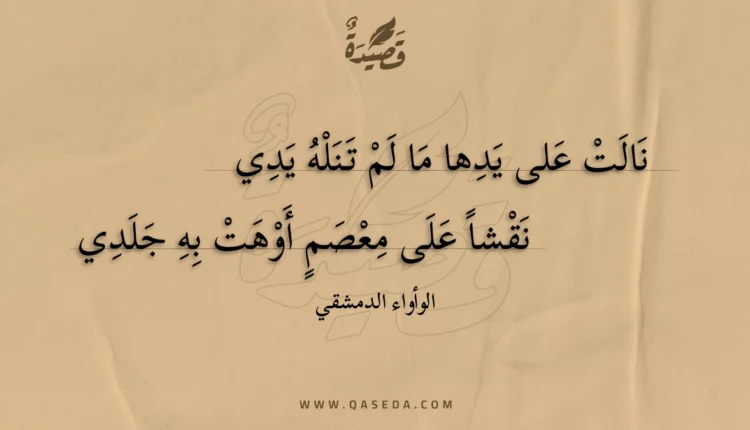 قَصِيدَةٌ
نَالَتْ عَلى يَدِها مَا لَمْ تَنَلْهُ يَدِي
نَقْشاً عَلَى مِعْصَمٍ أَوْهَتْ بِهِ جَلَدِي
الوأواء الدمشقي
WWW.QASEDA.COM